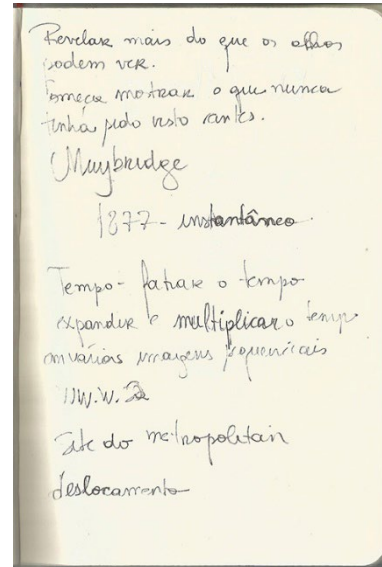 Revelar mais do que os olhos
podem ver.
Começa mostrar o que nunca
tinha sido visto antes.
Muybridge
1877 - instantâneo.
Tempo - fatiar o tempo
expandir e multiplicar o tempo
em várias imagens sequenciais
Site do metropolitain
deslocamento